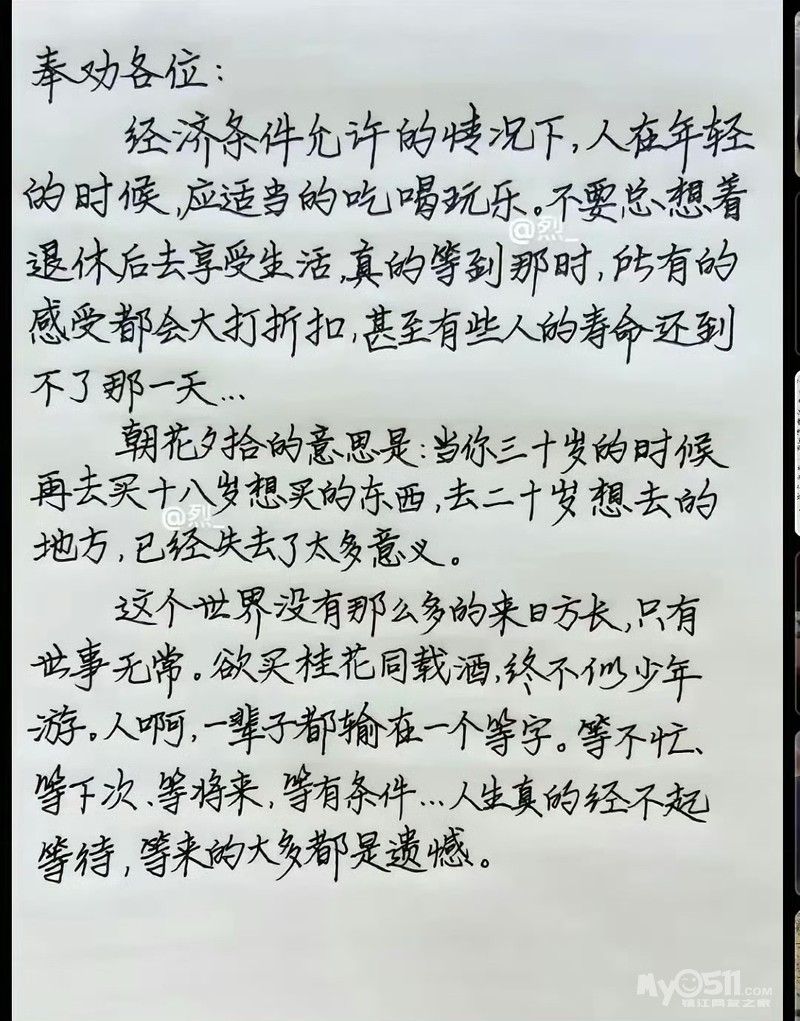 奉劝各位：
经济条件允许的情况下，人在年轻
的时候，应适当的吃喝玩乐。不要总想着
@烈_
退休后去享受生活，真的等到那时，所有的
感受都会大打折扣，甚至有些人的寿命还到
不了那一天…
朝花夕拾的意思是：当你三十岁的时候
再去买十八岁想买的东西，去二十岁想去的
@烈_
地方，已经失去了太多意义。
这个世界没有那么多的来日方长，只有
世事无常。欲买桂花同载酒，终不似少年
游。人啊，一辈子都输在一个等字。等不忙、
等下次、等将来，等有条件…人生真的经不起
等待，等来的大多都是遗憾。
My0511.COM
镇江网友之家